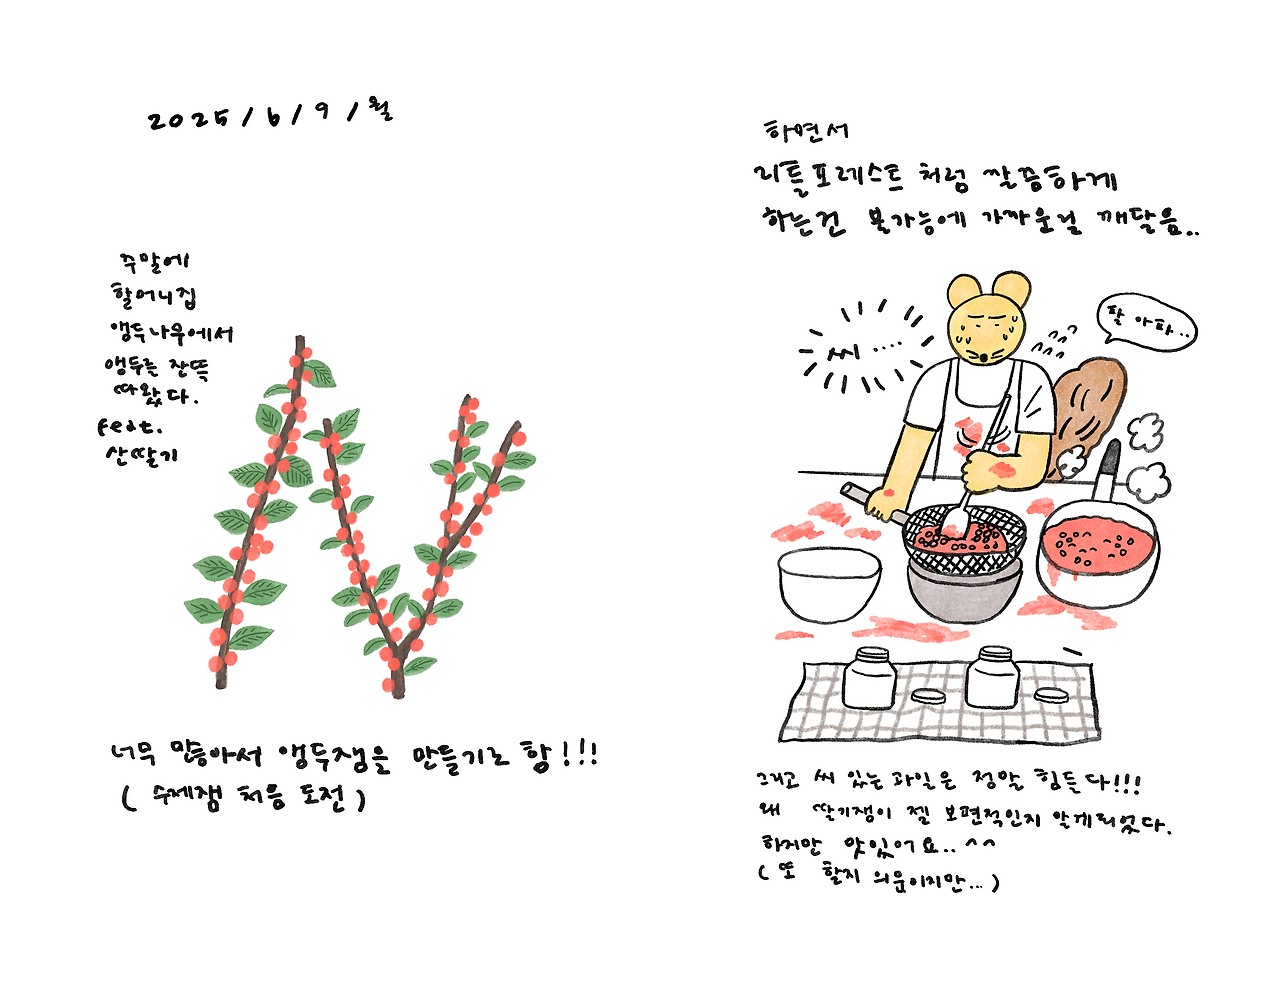 2025/6/9/월
주말에
할머니집
앵두나무에서
앵두를 잔뜩
따왔다.
feat.
산딸기
너무 많아서 앵두잼을 만들기로 함!!!
( 수제잼 처음 도전 )
하면서
리틀포레스트 처럼 깔끔하게
하는건 불가능에 가까운걸 깨달음..
씨 ....
팔 아파..
그리고 씨 있는 과일은 정말 힘들다!!!
왜 딸기쨈이 젤 보편적인지 알게되었다.
하지만 맛있어요.. ^^
( 또 할지 의문이지만... )